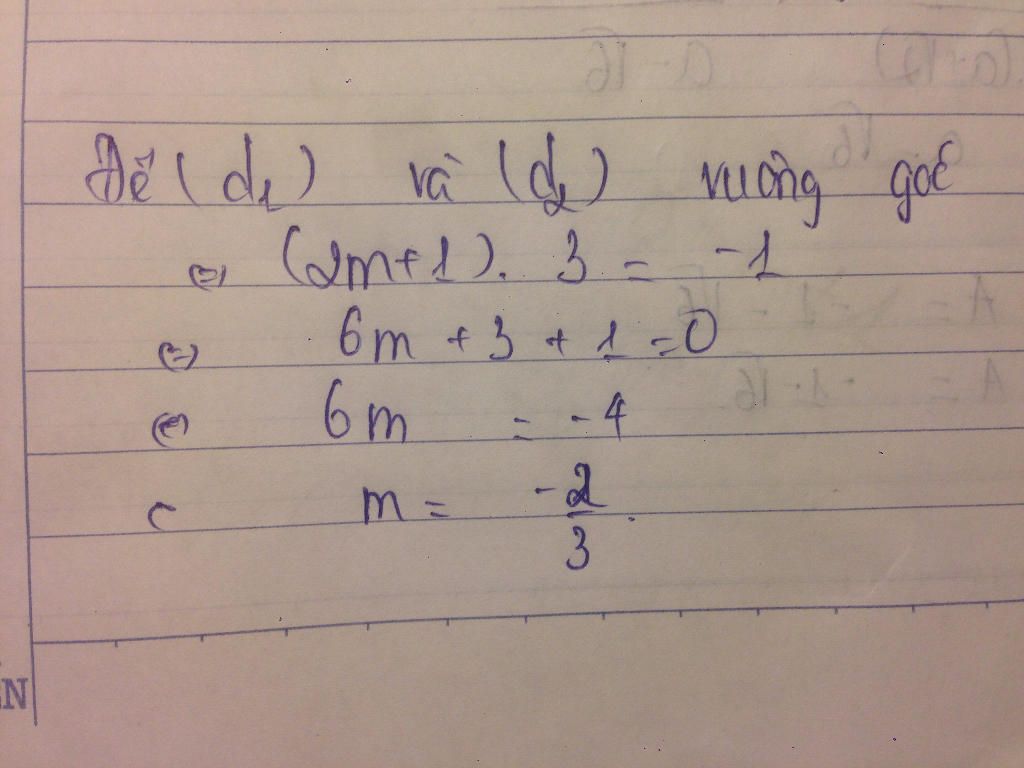 Để (d1) và (d2) vuông góc
(=) (2m+1). 3 = -1
(=) 6m + 3 + 1 = 0
(=) 6m = -4
( m = -2/3.